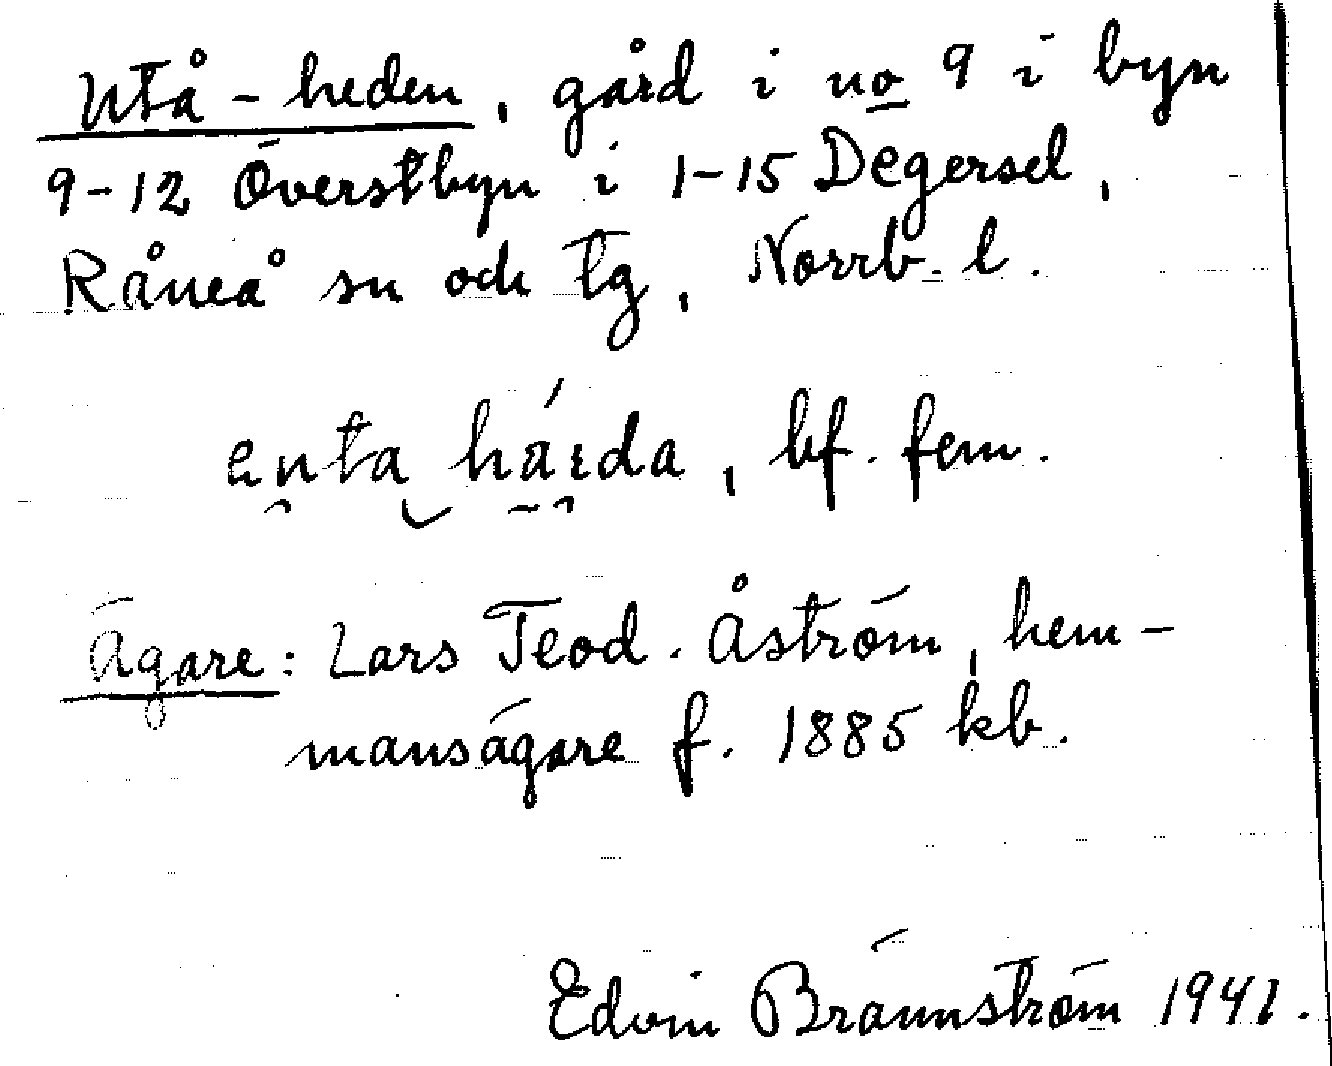 Utå-heden, gård i no 9 i byn
9-12 Överstbyn i 1-15 Degersel,
Råneå sn och tg, Norrb. l.
enta härda, bf. fem.
Ägare: Lars Teod. Åström, hem-
mansägare f. 1885 kb.
Edvin Brännström 1941.